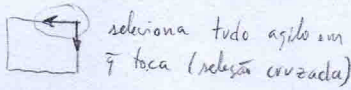 seleciona tudo aqilo em
q̄ toca (seleção cruzada)